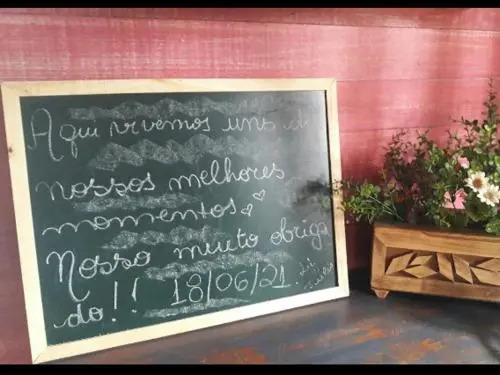 Aqui vivemos uns d
nossos melhores
momentos.
Nosso muito obriga
do!! 18/06/21.